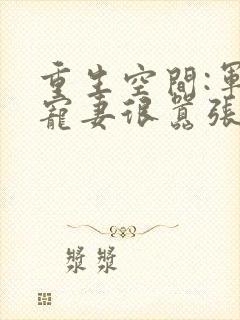 重生空間:軍
寵妻很囂張
漿漿